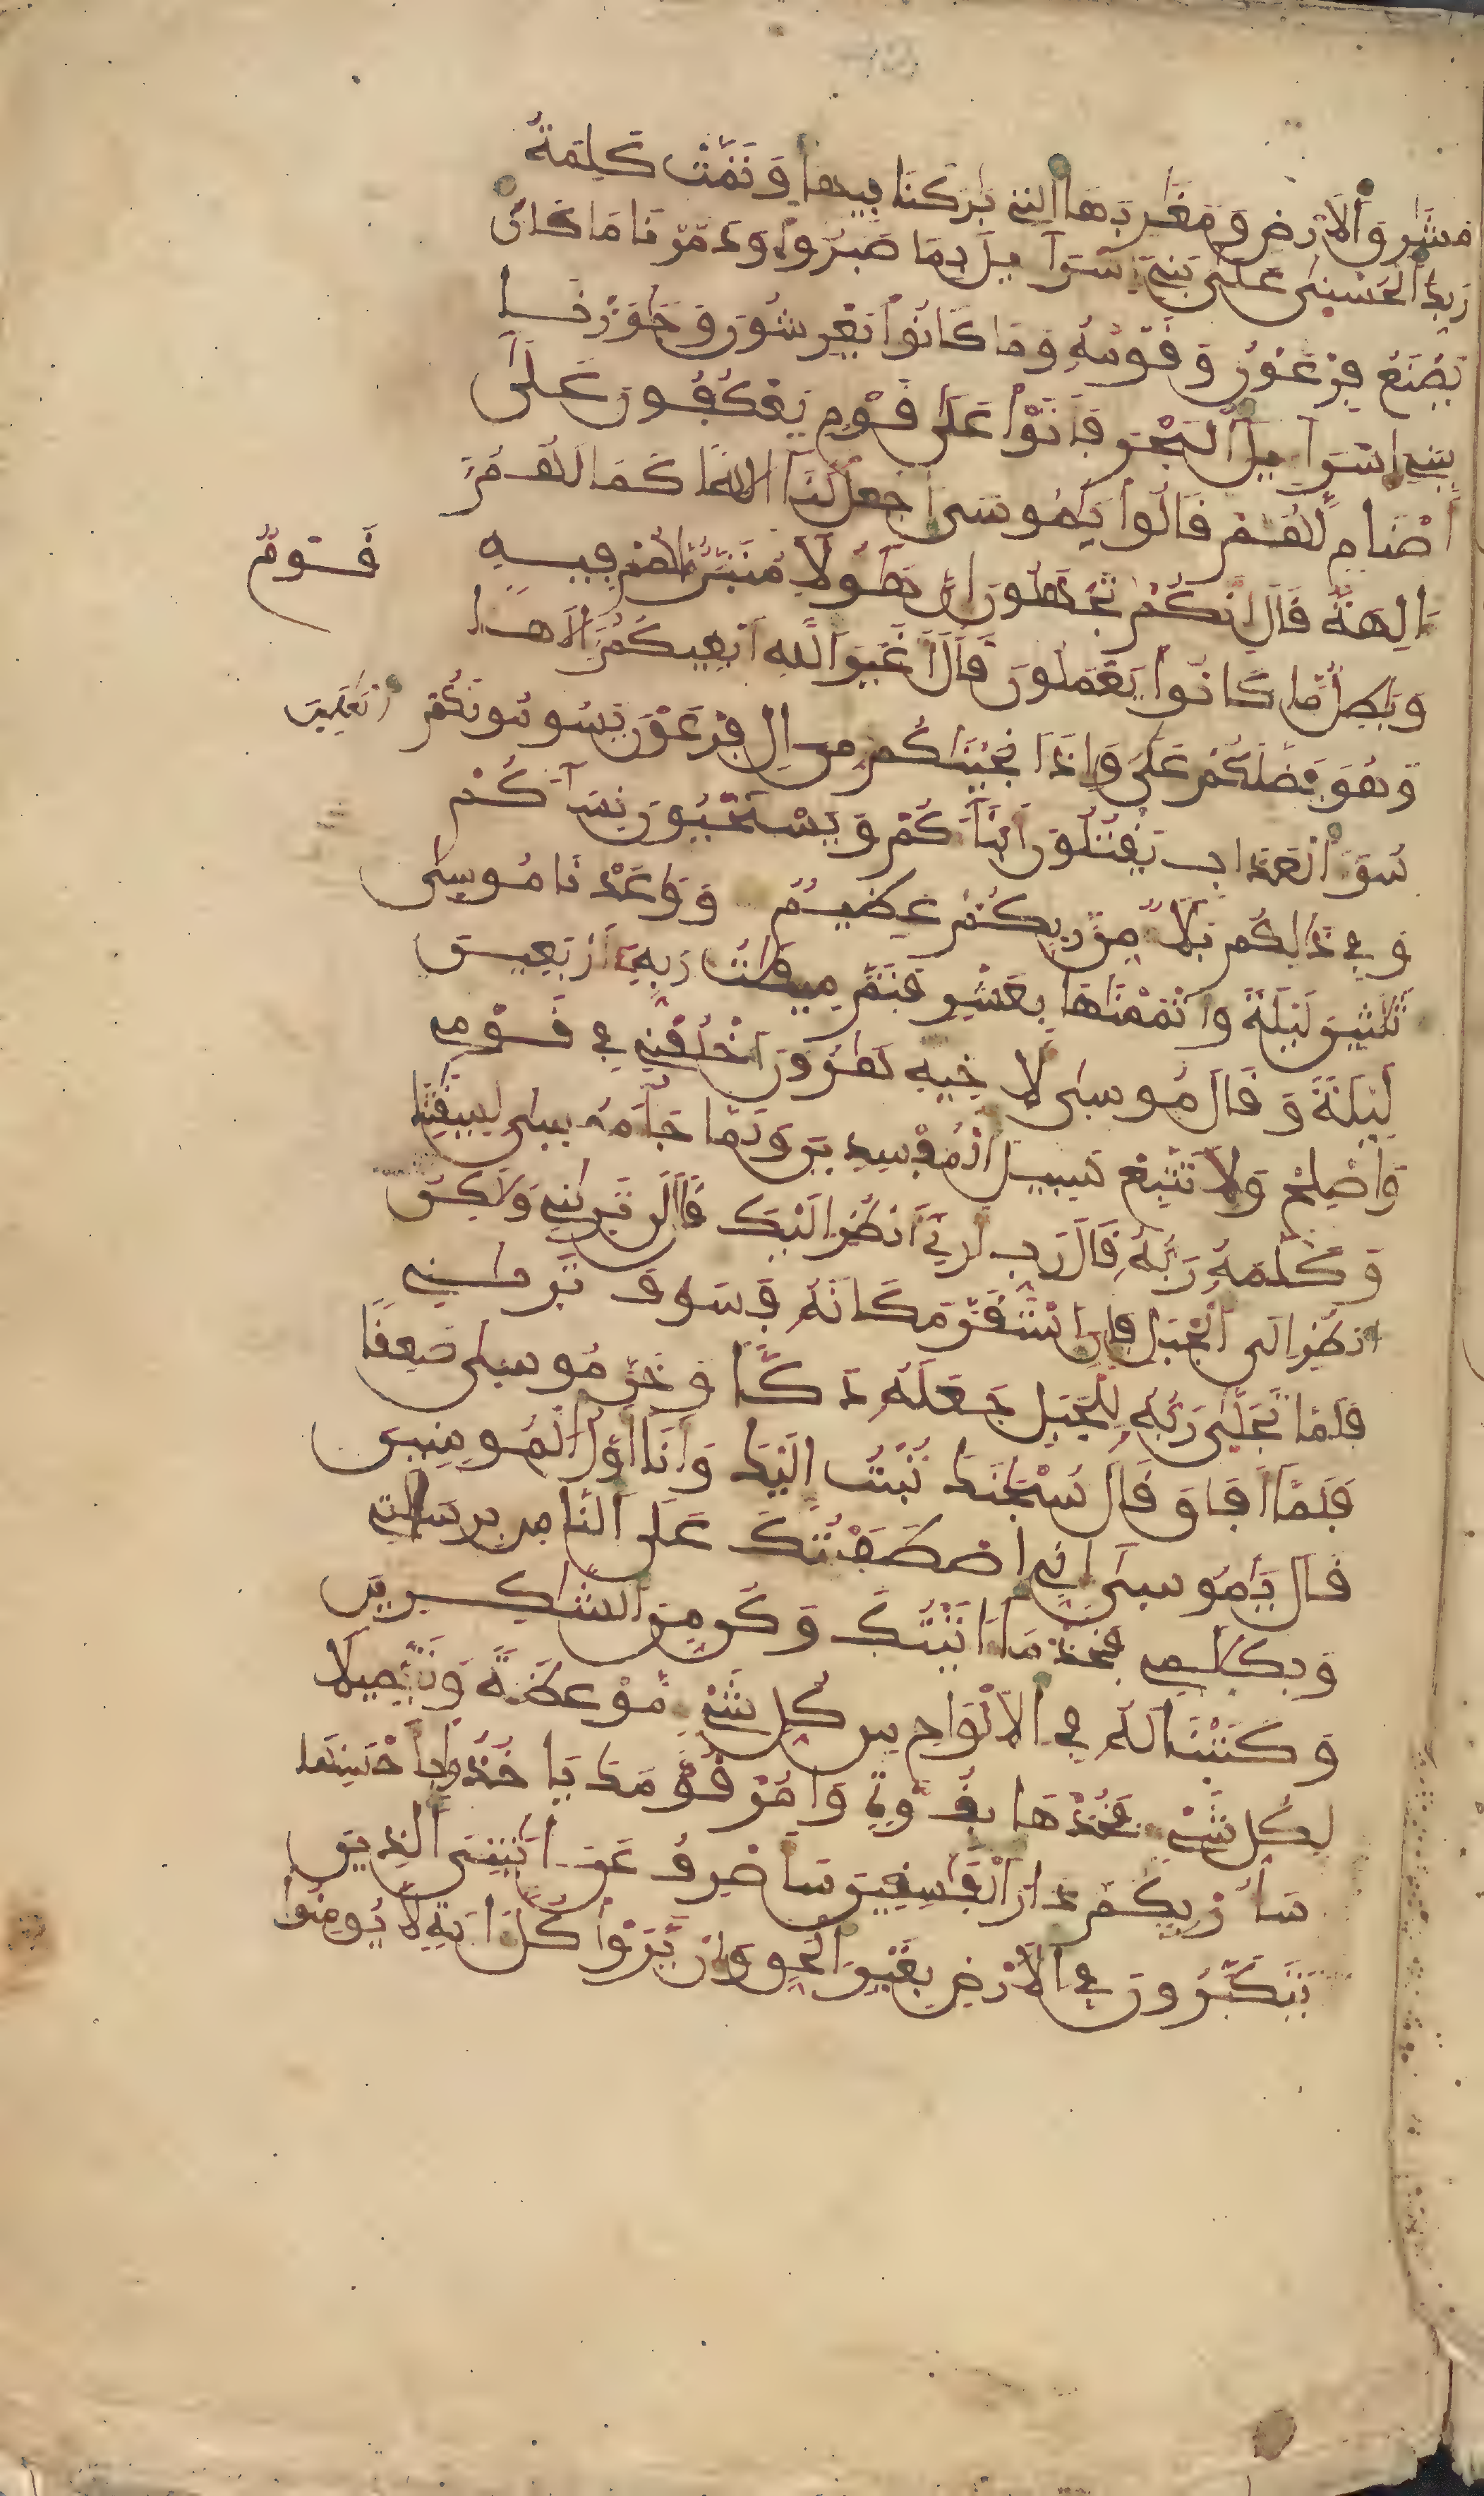 مَشَٰرِقَ ٱلَارْضِ وَمَغَٰرِبَهَا ٱلتِے بَٰرَكْنَا فِيهَا وَتَمَّتْ كَلِمَةُ
رَبِّكَ ٱلْحُسْنَىٰ عَلَىٰ بَنِے إِسْرَآءِيلَ بِمَا صَبَرُواْ وَدَمَّرْنَا مَا كَانَ
يَصْنَعُ فِرْعَوْنُ وَقَوْمُهُ وَمَا كَانُواْ يَعْرِشُونَ وَجَٰوَزْنَا
بِبَنِے إِسْرَآءِيلَ ٱلْبَحْرَ فَأَتَوْاْ عَلَىٰ قَوْمٍ يَعْكُفُونَ عَلَىٰ
أَصْنَامٍ لَّهُمْ قَالُواْ يَٰمُوسَى ٱجْعَل لَّنَا إِلَٰهًا كَمَا لَهُمُ
ءَالِهَةٌ قَالَ إِنَّكُمْ قَوْمٌ تَجْهَلُونَ إِنَّ هَٰؤُلَآ مُتَبَّرٌ مَّا هُمْ فِيهِ
وَبَٰطِلٌ مَّا كَانُواْ يَعْمَلُونَ قَالَ أَغَيْرَ ٱللَّهِ أَبْغِيكُمُ إِلَٰهًا
وَهُوَ فَضَّلَكُمْ عَلَى ٱلْعَٰلَمِينَ وَإِذَ انجَيْنَٰكُم مِّنَ ـالِ فِرْعَوْنَ يَسُومُونَكُمْ
سُوٓءَ ٱلْعَذَابِ يَقْتُلُونَ أَبْنَآءَكُمْ وَيَسْتَحْيُونَ نِسَآءَكُمْ
وَفِے ذَٰلِكُم بَلَآءٌ مِّن رَّبِّكُمْ عَظِيمٌ وَوَٰعَدْنَا مُوسَىٰ
ثَلَٰثِينَ لَيْلَةً وَأَتْمَمْنَٰهَا بِعَشْرٍ فَتَمَّ مِيقَٰتُ رَبِّهِ أَرْبَعِينَ
لَيْلَةً وَقَالَ مُوسَىٰ لِأَخِيهِ هَٰرُونَ ٱخْلُفْنِے فِے قَوْمِے
وَأَصْلِحْ وَلَا تَتَّبِعْ سَبِيلَ ٱلْمُفْسِدِينَ وَلَمَّا جَآءَ مُوسَىٰ لِمِيقَٰتِنَا
وَكَلَّمَهُ رَبُّهُ قَالَ رَبِّ أَرِنِے أَنظُرِ الَيْكَ قَالَ لَن تَرَىٰنِے وَلَٰكِنُ
ٱنظُرِ الَى ٱلْجَبَلِ فَإِنِ ٱسْتَقَرَّ مَكَانَهُ فَسَوْفَ تَرَىٰنِے
فَلَمَّا تَجَلَّىٰ رَبُّهُ لِلْجَبَلِ جَعَلَهُ دَكًّا وَخَرَّ مُوسَىٰ صَعِقًا
فَلَمَّا أَفَاقَ قَالَ سُبْحَٰنَكَ تُبْتُ إِلَيْكَ وَأَنَا أَوَّلُ ٱلْمُومِنِينَ
قَالَ يَٰمُوسَىٰ إِنِّے ٱصْطَفَيْتُكَ عَلَى ٱلنَّاسِ بِرِسَٰلَتِے
وَبِكَلَٰمِے فَخُذْ مَا ءَاتَيْتُكَ وَكُن مِّنَ ٱلشَّٰكِرِينَ
وَكَتَبْنَا لَهُ فِے ٱلَالْوَاحِ مِن كُلِّ شَےْءٍ مَّوْعِظَةً وَتَفْصِيلًا
لِّكُلِّ شَےْءٍ فَخُذْهَا بِقُوَّةٍ وَامُرْ قَوْمَكَ يَاخُذُواْ بِأَحْسَنِهَا
سَأُوْرِيكُمْ دَارَ ٱلْفَٰسِقِينَ سَأَصْرِفُ عَنَ ـايَٰتِيَ ٱلذِينَ
يَتَكَبَّرُونَ فِے ٱلَارْضِ بِغَيْرِ ٱلْحَقِّ وَإِنْ يَّرَوْاْ كُلَّ ءَايَةٍ لَّا يُومِنُواْ